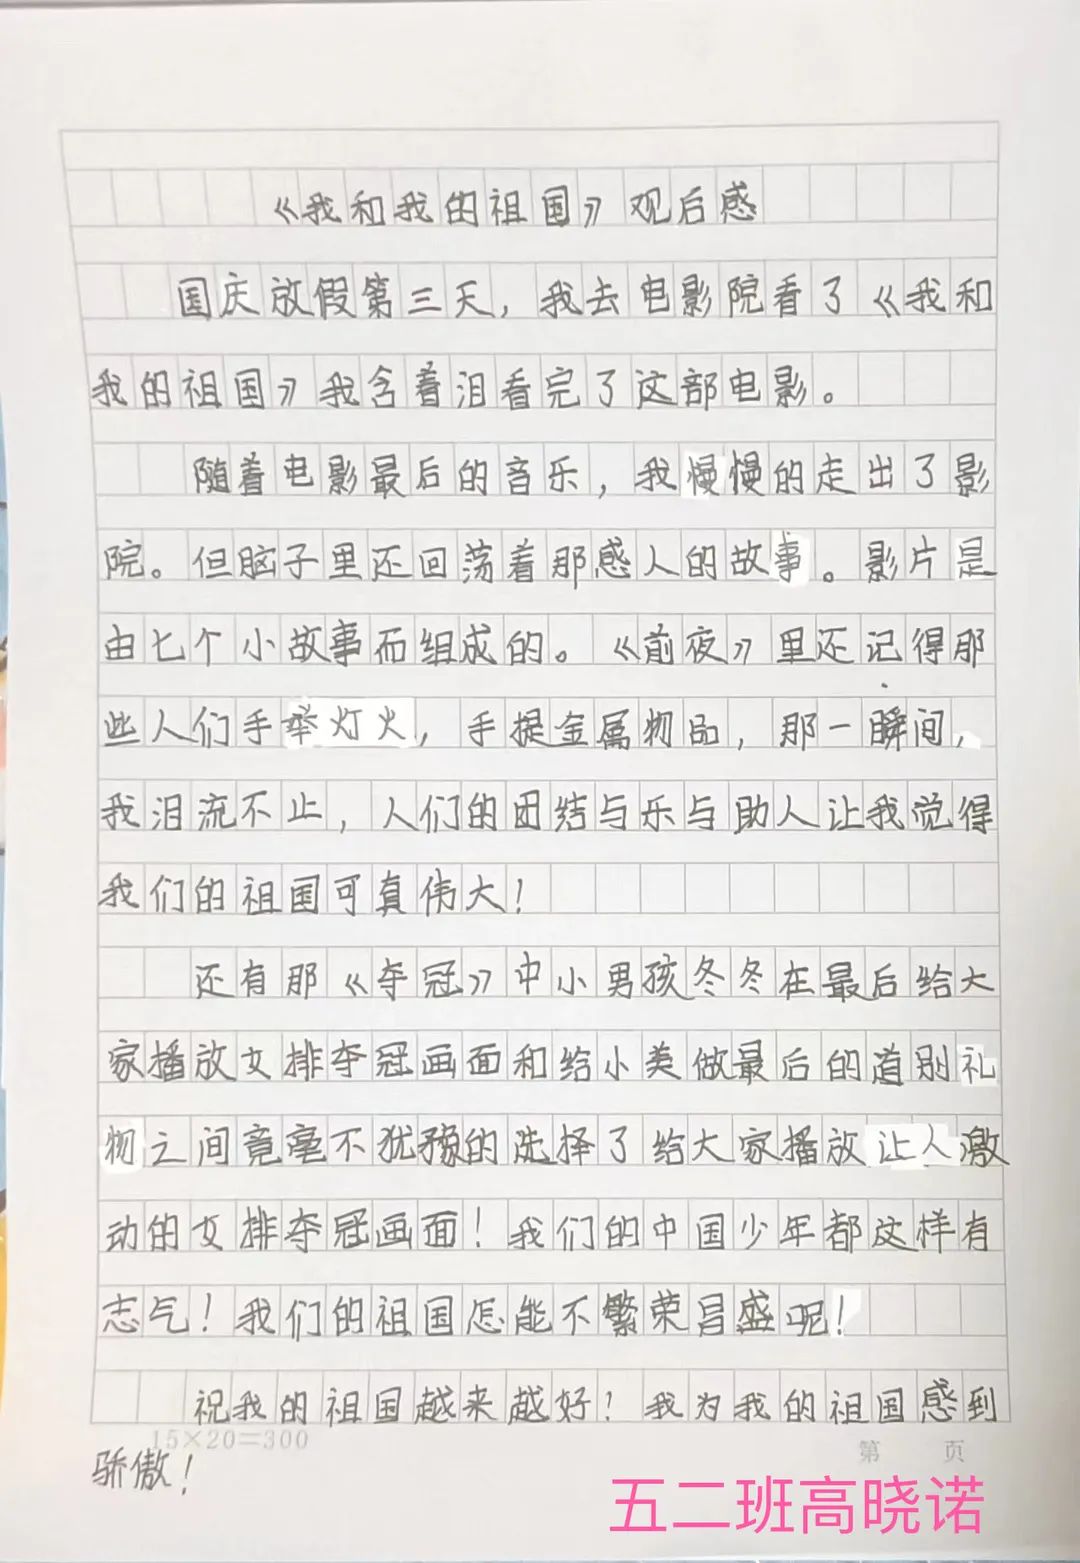 《我和我的祖国》观后感
国庆放假第三天，我去电影院看了《我和
我的祖国》我含着泪看完了这部电影。
随着电影最后的音乐，我慢慢的走出了影
院。但脑子里还回荡着那感人的故事。影片是
由七个小故事而组成的。《前夜》里还记得那
些人们手举灯火，手提金属物品，那一瞬间，
我泪流不止，人们的团结与乐与助人让我觉得
我们的祖国可真伟大！
还有那《夺冠》中小男孩冬冬在最后给大
家播放女排夺冠画面和给小美做最后的道别礼
物之间竟毫不犹豫的选择了给大家播放让人激
动的女排夺冠画面！我们的中国少年都这样有
志气！我们的祖国怎能不繁荣昌盛呢！
祝我的祖国越来越好！我为我的祖国感到
骄傲！
15×20=300
第 页
五二班高晓诺